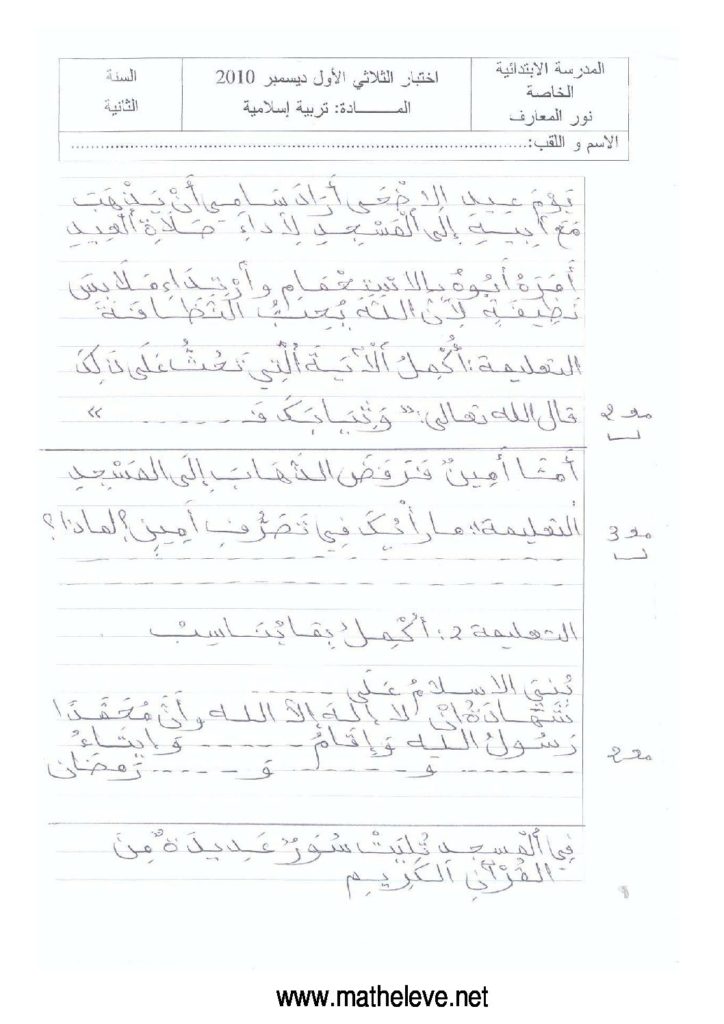 المدرسة الابتدائية
الخاصة
نور المعارف
اختبار الثلاثي الأول ديسمبر 2010
المـــــادة: تربية إسلامية
السنة
الثانية
الاسم و اللقب:......................................................................
يَوْمَ عِيدِ الاِضْحَى أَرَادَ سَامِي أَنْ يَذْهَبَ
مَعَ أَبِيهِ إِلَى الْمَسْجِدِ لِأَدَاءِ صَلَاةِ الْعِيدِ
أَمَرَهُ أَبُوهُ بِالاسْتِحْمَامِ وَارْتِدَاءِ مَلَابِسَ
نَظِيفَةٍ لِأَنَّ اللَّهَ يُحِبُّ النَّظَافَةَ
التعليمة: أُكْمِلُ الْآيَةَ الَّتِي تَحُثُّ عَلَى ذَلِكَ
قال الله تعالى: " وَثِيَابَكَ فَـ ........ "
مع 2
أَمَّا أَمِينٌ فَرَفَضَ الذَّهَابَ إِلَى المَسْجِدِ
التعليمة 1: ما رَأْيُكَ فِي تَصَرُّفِ أَمِينٍ؟ لماذا؟
مع 3
التعليمة 2: أُكْمِلُ بِمَا يُنَاسِبُ
بُنِيَ الاسلامُ عَلَى ........
شَهَادَةُ أَنْ لا إلَهَ إِلاَّ الله وَأَنَّ مُحَمَّدًا
رَسُولُ اللهِ وَإِقَامُ ........ وَإِيتَاءُ
........ وَ ........ وَ ........ رَمَضَان
مع 2
فِي الْمَسْجِدِ تُلِيَتْ سُوَرٌ عَدِيدَةٌ مِنَ
القُرْآنِ الكَرِيمِ
1
www.matheleve.net